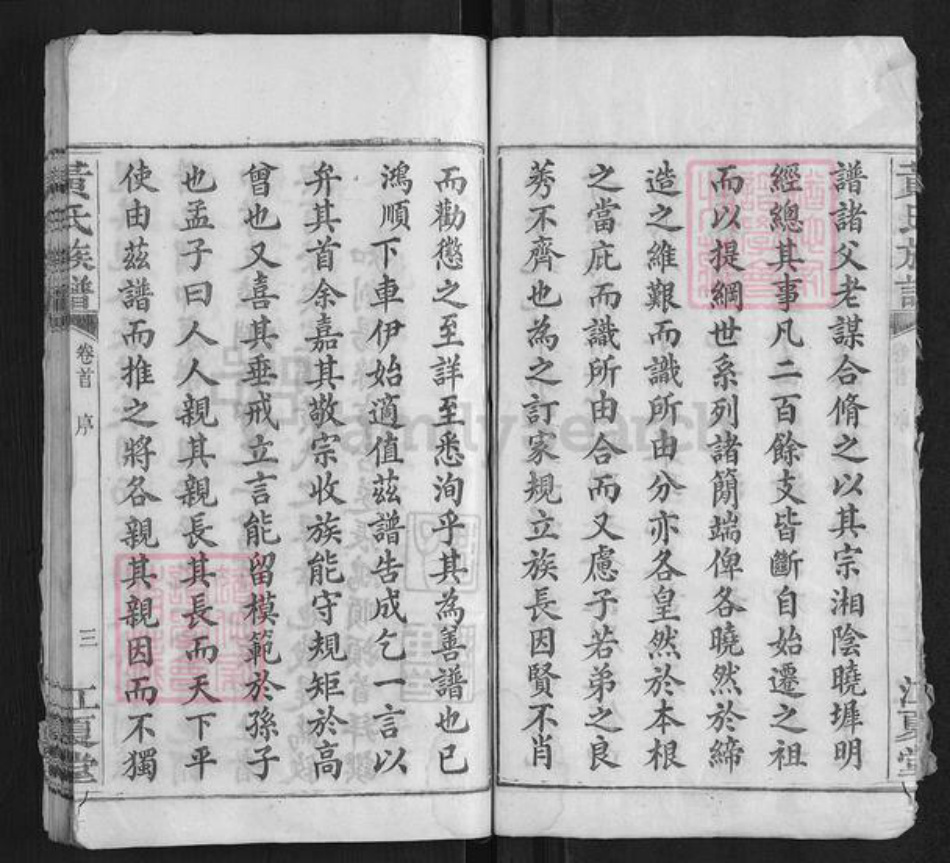 譜諸父老謀合脩之以其宗湘陰曉墀明
經總其事凡二百餘支皆斷自始遷之祖
而以提綱世系列諸簡端俾各曉然於締
造之維艱而識所由分亦各皇然於本根
之當庇而識所由合而又慮子若弟之良
莠不齊也為之訂家規立族長因賢不肖
而勸懲之至詳至悉洵乎其為善譜也已
鴻順下車伊始適值茲譜告成乞一言以
弁其首余嘉其敬宗收族能守規矩於高
曾也又喜其垂戒立言能留模範於孫子
也孟子曰人人親其親長其長而天下平
使由茲譜而推之將各親其親因而不獨
黃氏族譜
卷首 序
三
江夏堂
familysearch